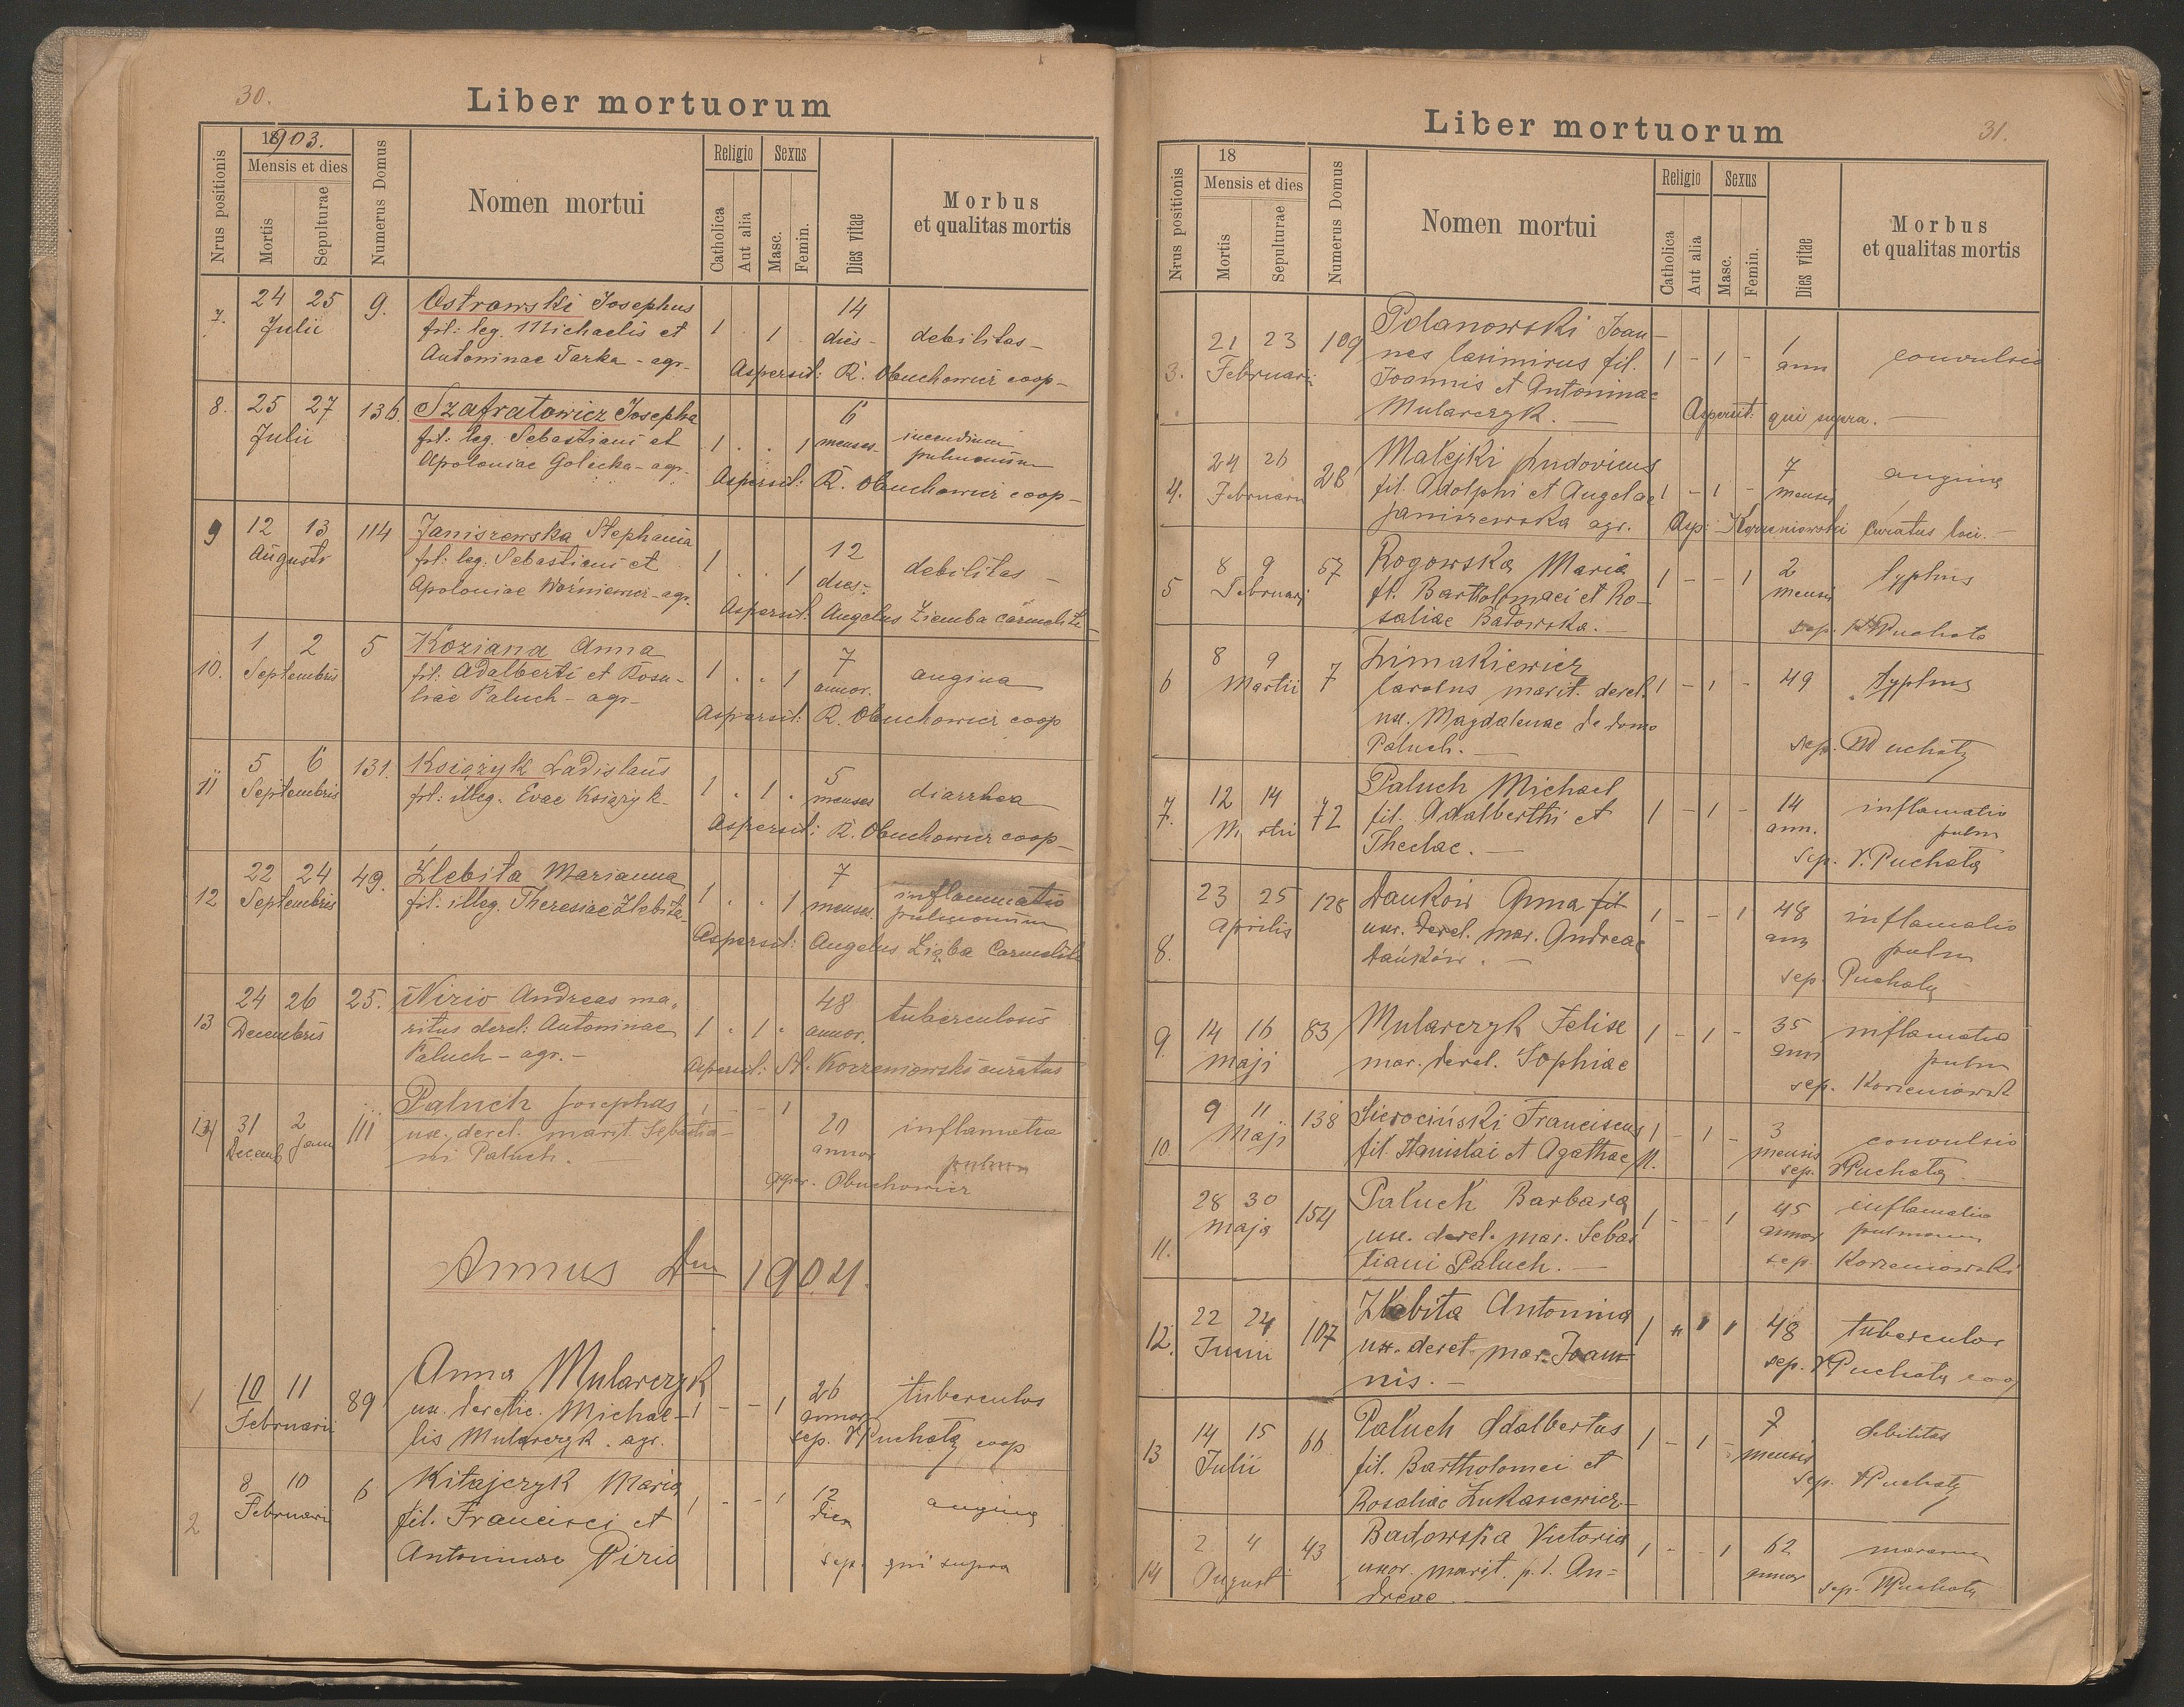 30.
Liber mortuorum
Nrus positionis
18903.
Mensis et dies
Mortis
Sepulturae
Numerus Domus
Nomen mortui
Religio
Catholica
Aut alia
Sexus
Masc.
Femin.
Dies vitae
Morbus
et qualitas mortis
7. 24 25 9. Ostrowski Josephus 14
Julii fil: leg. Michaelis et 1 . 1 . dies - debilitas -
Antoninae Tarka - agr.
Aspersit: R. Obuchowicz coop -
8. 25 27 136. Szafratowicz Josepha 6
Julii fil: leg. Sebastiani et 1 . . 1 menses incendium
Apoloniae Golecka - agr. pulmonum
Aspersit: R. Obuchowicz coop -
9 12 13 114 Janiszewska Stephania 12
Augusti fil: leg. Sebastiani et 1 . . 1 dies - debilitas -
Apoloniae Woźniewicz - agr.
Aspersit: Angelus Ziemba carmelita
10. 1 2 5 Koziana Anna 7
Septembris fil: Adalberti et Rosa- 1 . . 1 annor. angina
liae Paluch - agr -
Aspersit: R. Obuchowicz coop
11 5 6 131. Książyk Ladislaus 5
Septembris fil: illeg. Evae Książyk - 1 . 1 . menses diarrhea
Aspersit: R. Obuchowicz coop -
12 22 24 49. Zlebita Marianna 7
Septembris fil: illeg. Theresiae Zlebita - 1 . . 1 menses. inflammatio
pulmonum
Aspersit: Angelus Zięba Carmelita
13 24 26 25. Nirio Andreas ma- 48
Decembris ritus derel: Antoninae 1 . 1 . annor. tuberculosis
Paluch - agr. -
Aspersit: St. Korzeniowski curatus
14 31 2 111 Paluch Josephas 1 - - 1 20
Decemb Janu ux. derel. marit. Sebastia- annor inflamatia
ni Paluch. pulmon
asper. Obuchowicz
Annus Dni 1904.
1 10 11 89 Anna Mularczyk 26
Februarii ux. derelic. Michae- 1 - - 1 annor tuberculos
lis Mularczyk. agr. sep. V Puchała coop
2 8 10 6 Kitajczyk Maria 12
Februari fil. Francisci et 1 - - 1 dies angina
Antoninae Pirio sep. qui supra
Liber mortuorum
31.
Nrus positionis
18
Mensis et dies
Mortis
Sepulturae
Numerus Domus
Nomen mortui
Religio
Catholica
Aut alia
Sexus
Masc.
Femin.
Dies vitae
Morbus
et qualitas mortis
3. 21 23 109 Polanowski Joan-
Februari nes Casimirus fil. 1 - 1 - 1 ann convulsio
Joannis et Antoninae
Mularczyk. - Aspersit: qui supra. -
4. 24 26 28 Malejki Ludovicus 7
Februari fil. Adolphi et Angelae 1 - 1 - mensis angina
Janiszewska agr. Asp: Korzeniowski Curatus loci. -
5 8 9 57 Rogowska Maria 2
Februari fil. Bartholomaei et Ro- 1 - - 1 mensis typhus
saliae Badowska. - sep. V Puchała
6 8 9 7 Limakiewicz
Martii Carolus marit. derel. 1 - 1 - 49 typhus
ux. Magdalenae de domo
Paluch. - sep. V Puchała
7. 12 14 72 Paluch Michael 14
Martii fil. Adalberthi et 1 - 1 - ann. inflamatio
Theclae. - pulm
sep. V. Puchała
8. 23 25 128 Dańkow Anna fil 48
Aprilis uxr. derel. mar. Andreae 1 - - 1 ann inflamatio
Dańków. - pulm
sep. Puchała
9. 14 16 83 Mularczyk Felise 35
Maji mar. derel. Sophiae 1 - 1 - ann inflamatia
pulm
sep. Korzeniowsk
10 9 11 138 Sierociński Franciscus 3
Maji fil. Stanislai et Agathae N. 1 - 1 - mensis convulsio
sep. V Puchała. -
11. 28 30 154 Paluch Barbara 45
Maja ux. derel. mar. Sebas 1 - - 1 annor inflamatio
tiani Paluch. - pulmonum
sep. Korzeniowski
12. 22 24 107 Zlebita Antonina
Junii ux. derel. mar. Joan- 48 tuberculos
nis. - sep. V Puchała coop
13 14 15 66 Paluch Adalbertus 7
Julii fil. Bartholomei et 1 - 1 - mensis debilitas
Rosaliae Łukasiewicz - sep. V Puchała
14 2 4 43 Badowska Victoria 62
August uxor. marit. p. d. An= 1 - - 1 annor
dreae. - sep. V Puchała